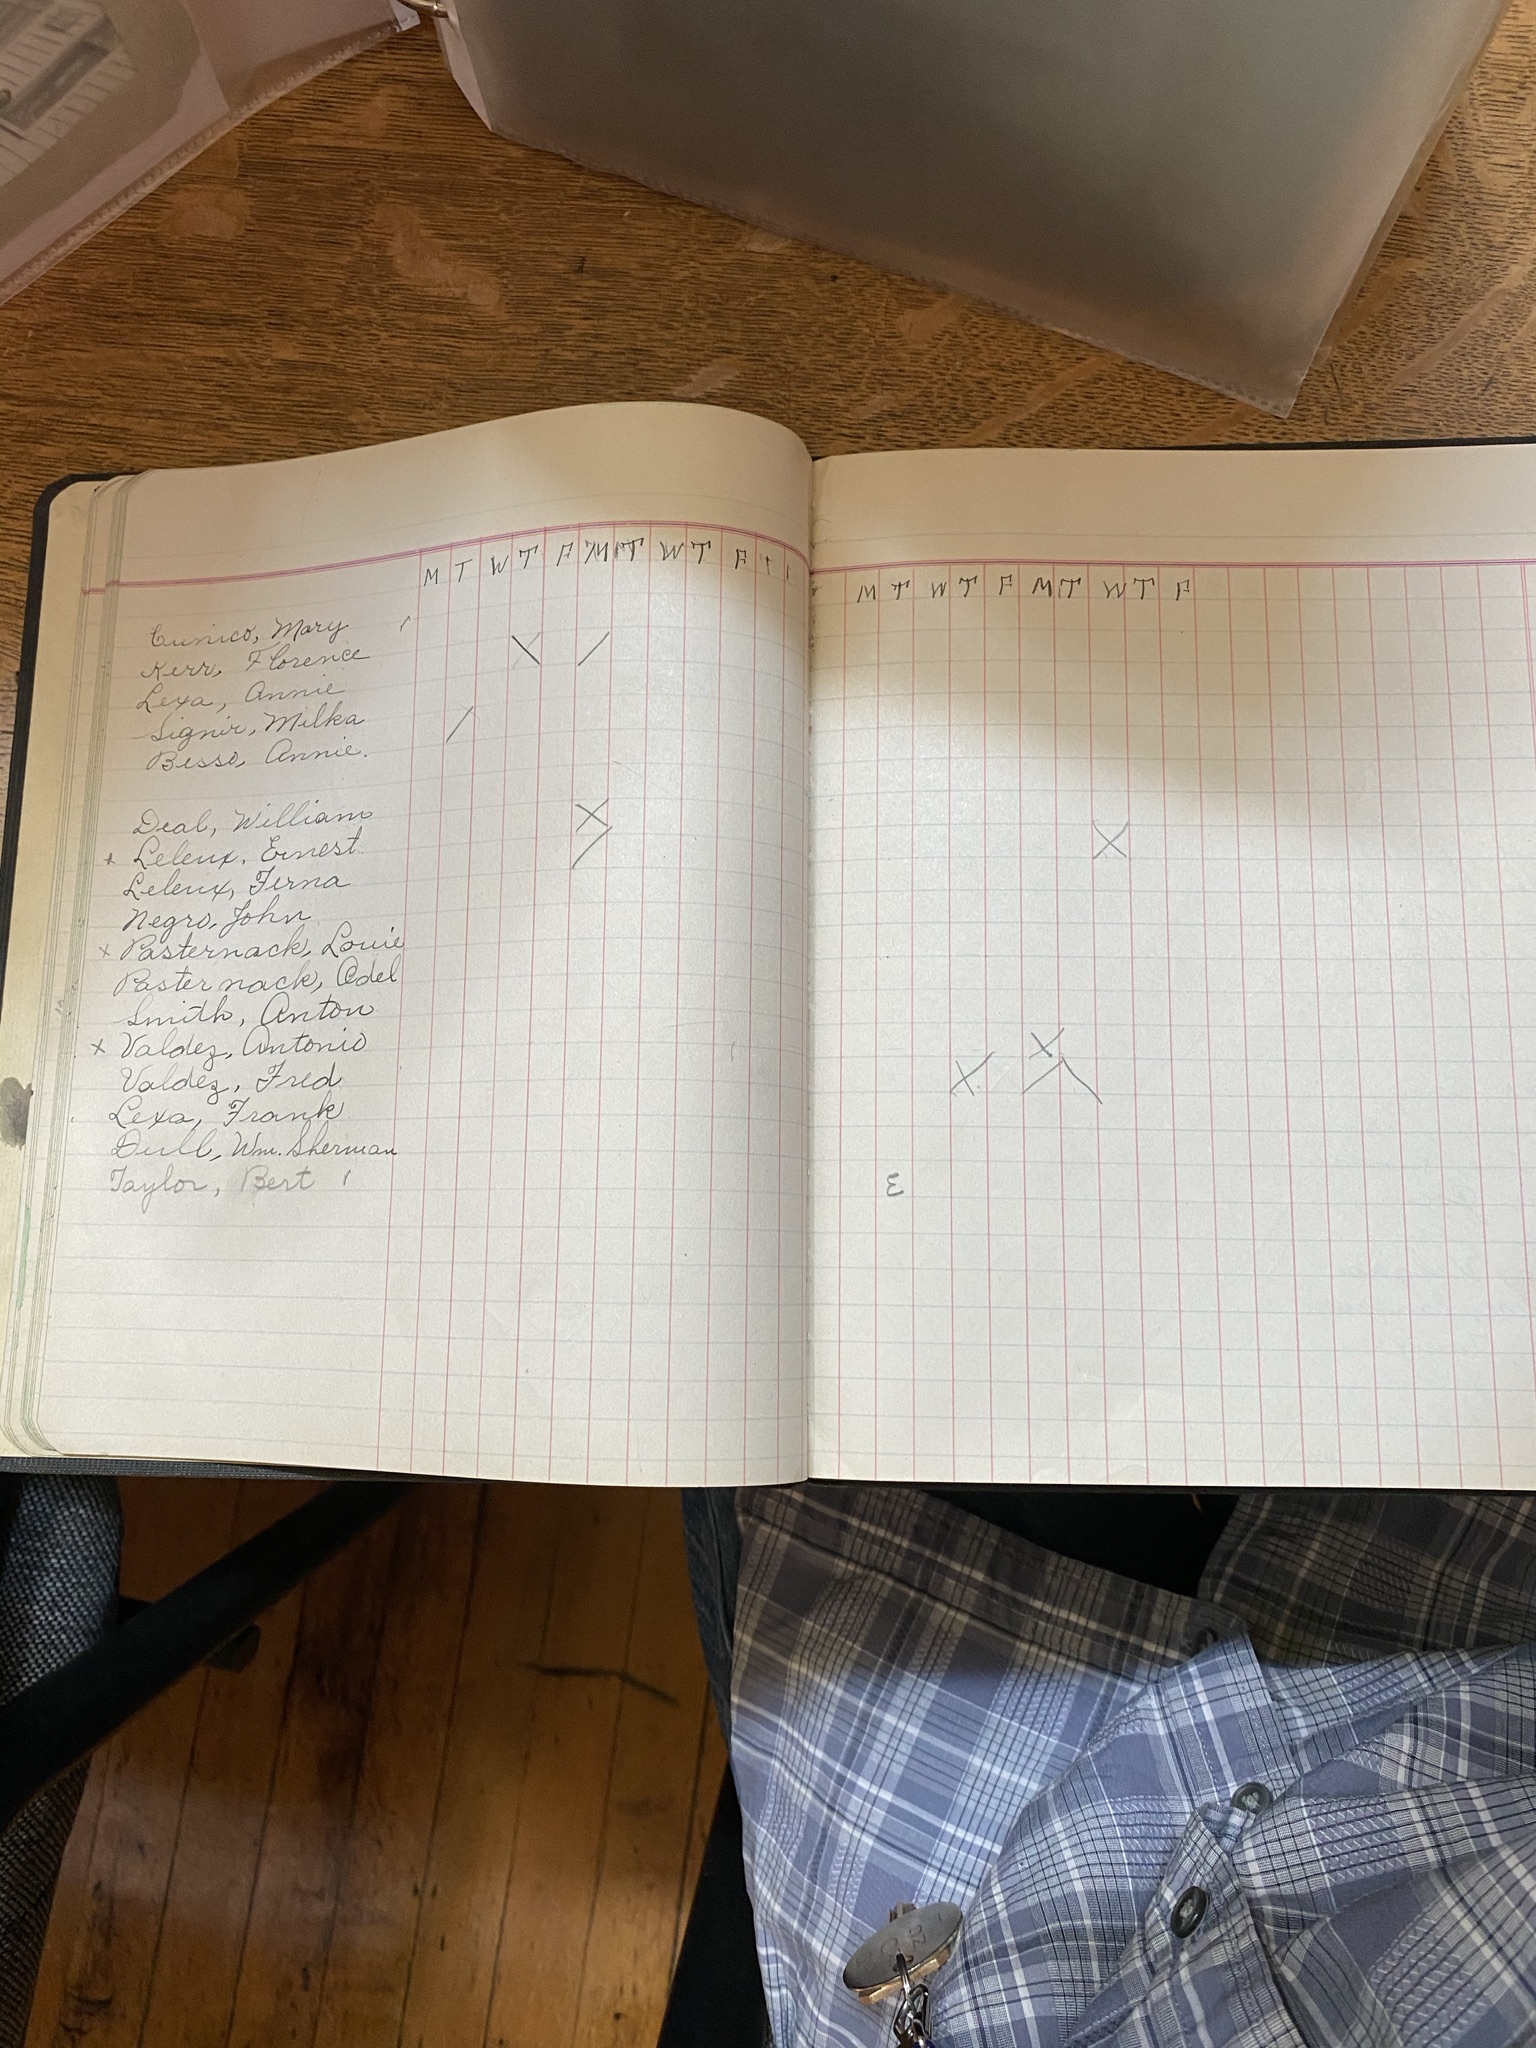 M T W T F M T W T F
M T W T F M T W T F
Cunico, Mary
Kerr, Florence
Lexa, Annie
Signir, Milka
Besso, Annie.
Deal, William
x Leleux, Ernest
Leleux, Ferna
Negro, John
x Pasternack, Louie
Pasternack, Adel
Smith, Anton
x Valdez, Antonio
Valdez, Fred
Lexa, Frank
Dull, Wm. Sherman
Taylor, Bert
E